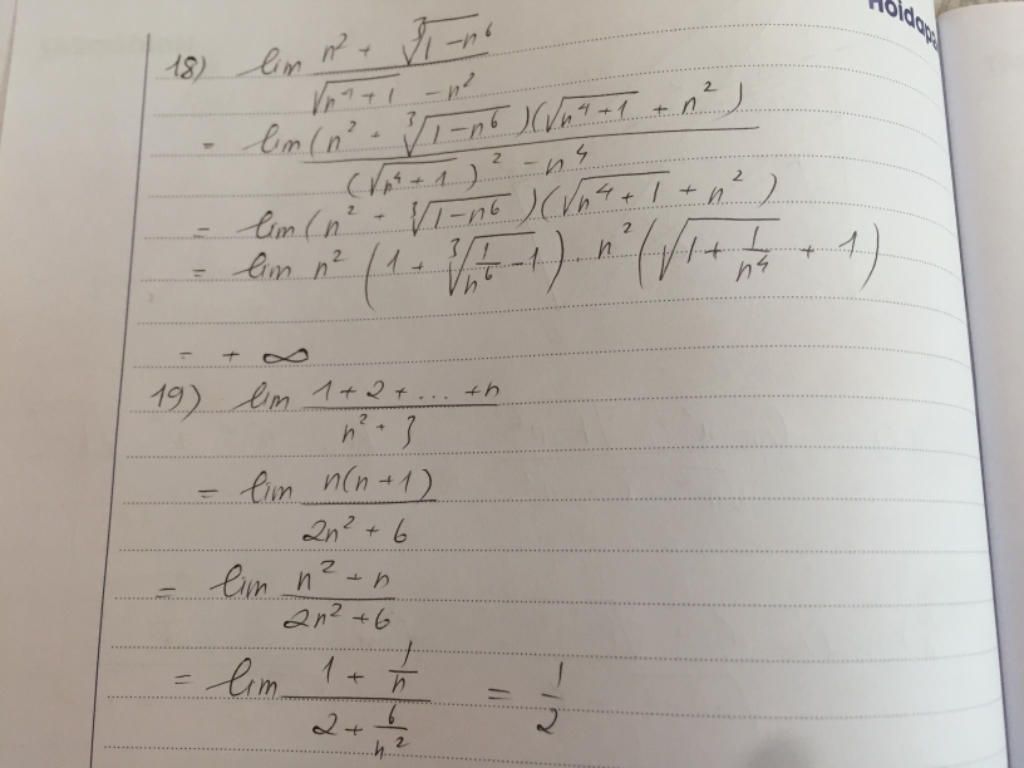 Hoidap
18) lim \frac{n^2 + \sqrt[3]{1-n^6}}{\sqrt{n^4+1} - n^2}
= lim \frac{(n^2 + \sqrt[3]{1-n^6})(\sqrt{n^4+1} + n^2)}{(\sqrt{n^4+1})^2 - n^4}
= lim (n^2 + \sqrt[3]{1-n^6})(\sqrt{n^4+1} + n^2)
= lim n^2 (1 + \sqrt[3]{\frac{1}{n^6} - 1}) . n^2 (\sqrt{1 + \frac{1}{n^4}} + 1)
= + ∞
19) lim \frac{1+2+...+n}{n^2+3}
= lim \frac{n(n+1)}{2n^2+6}
= lim \frac{n^2+n}{2n^2+6}
= lim \frac{1+\frac{1}{n}}{2+\frac{6}{n^2}} = \frac{1}{2}